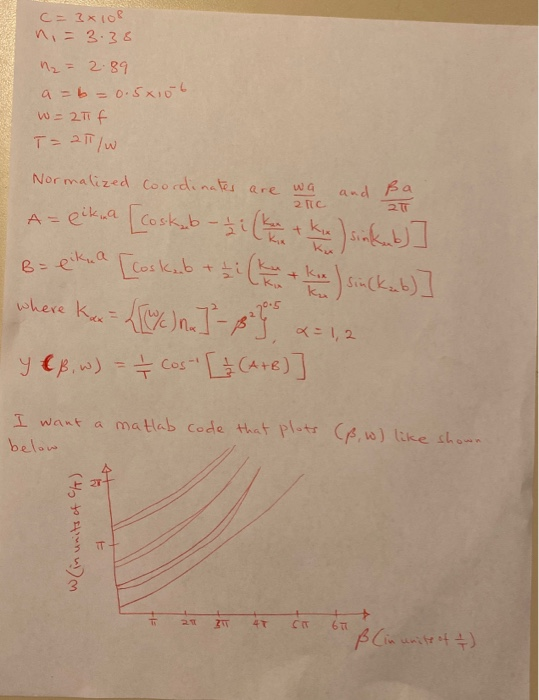 c = 3×10⁸
n₁ = 3.38
n₂ = 2.89
a = b = 0.5×10⁻⁶
w = 2πf
T = 2π/w
Normalized coordinates are wa/2πc and βa/2π
A = e^{ik₁ₓa} [cosk₂ₓb - ½i (k₂ₓ/k₁ₓ + k₁ₓ/k₂ₓ) sin(k₂ₓb)]
B = e^{ik₁ₓa} [cosk₂ₓb + ½i (k₂ₓ/k₁ₓ + k₁ₓ/k₂ₓ) sin(k₂ₓb)]
where Kαx = {[(w/c)nα]² - β²}^0.5, α = 1, 2
y (β, w) = 1/T cos⁻¹ [½(A+B)]
I want a matlab code that plots (β, w) like shown
below
w (in units of c/T)
2π
π
π 2π 3π 4π 5π 6π
β (in units of 1/T)